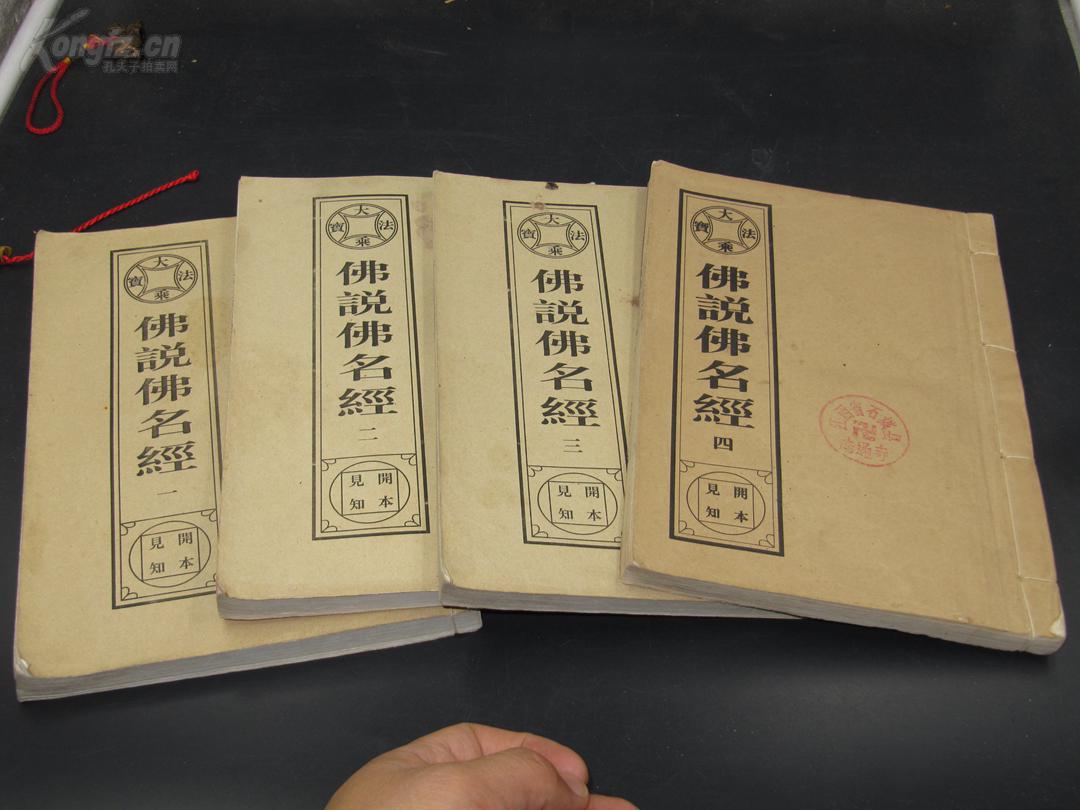 Kongfz.cn
孔夫子拍卖网
大乘法寶
佛説佛名經 一
開本
見知
大乘法寶
佛説佛名經 二
開本
見知
大乘法寶
佛説佛名經 三
開本
見知
大乘法寶
佛説佛名經 四
開本
見知
西省石
通寺